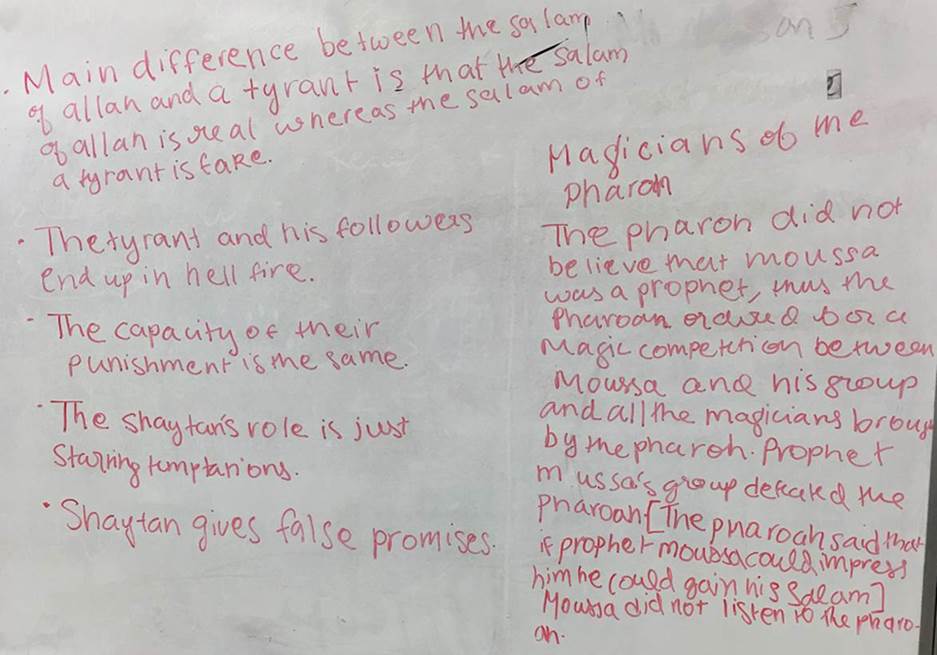 . Main difference between the salam
of allah and a tyrant is that the salam
of allah is real whereas the salam of
a tyrant is fake.
· The tyrant and his followers
end up in hell fire.
· The capacity of their
punishment is the same.
· The shaytan's role is just
starring temptations.
· Shaytan gives false promises.
Magicians of the
pharoh
The pharon did not
believe that moussa
was a prophet, thus the
pharoan ordered for a
Magic competition between
Moussa and his group
and all the magicians broug
by the pharoh. Prophet
mussa's group defeated the
pharoah [The pharoah said that
if prophet moussa could impress
him he could gain his Salam]
Moussa did not listen to the pharo-
oh.